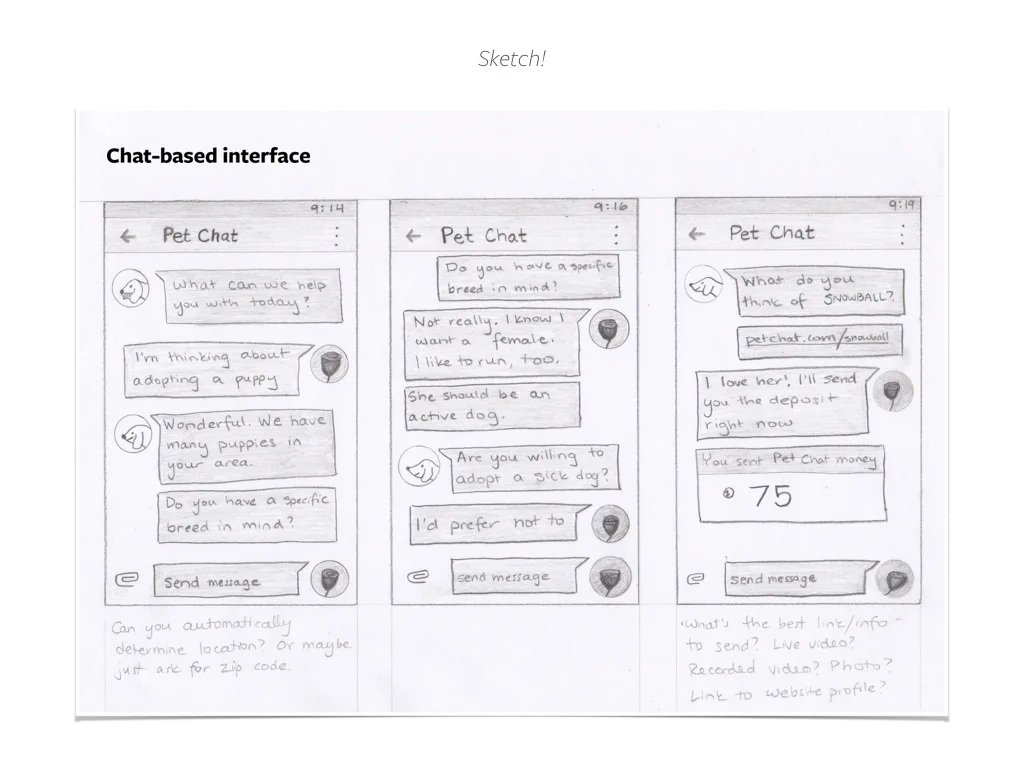 Sketch!
Chat-based interface
9:14
Pet Chat
What can we help
you with today?
I'm thinking about
adopting a puppy
Wonderful. We have
many puppies in
your area.
Do you have a specific
breed in mind?
Send message
Can you automatically
determine location? Or maybe
just ask for zip code.
9:16
Pet Chat
Do you have a specific
breed in mind?
Not really. I know I
want a female.
I like to run, too.
She should be an
active dog.
Are you willing to
adopt a sick dog?
I'd prefer not to
send message
9:19
Pet Chat
What do you
think of SNOWBALL?
petchat.com/snowball
I love her! I'll send
you the deposit
right now
You sent Pet Chat money
$ 75
send message
•What's the best link/info
to send? Live video?
Recorded video? Photo?
Link to website profile?